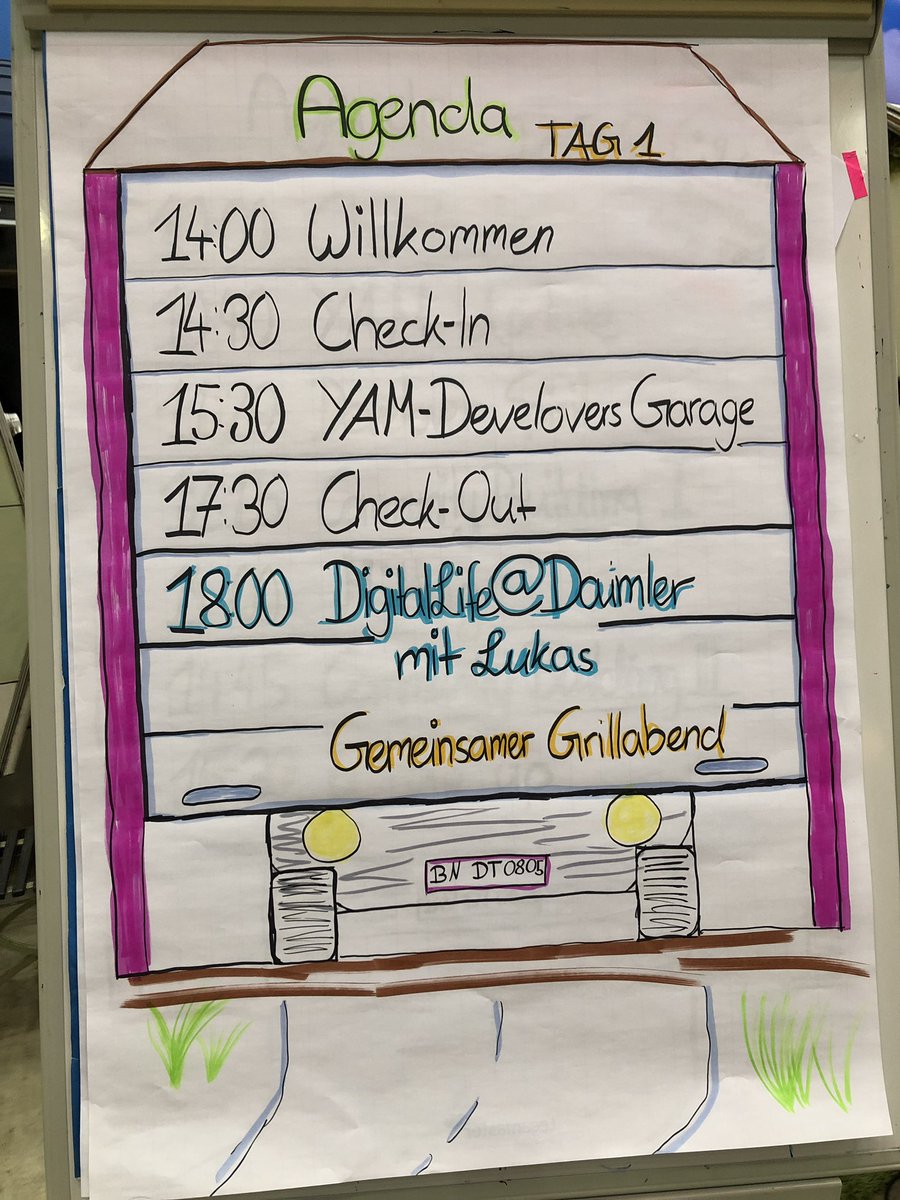 Agenda
TAG 1
14:00 Willkommen
14:30 Check-In
15:30 YAM-Develovers Garage
17:30 Check-Out
18:00 DigitalLife@Daimler
mit Lukas
Gemeinsamer Grillabend
BN DT0805